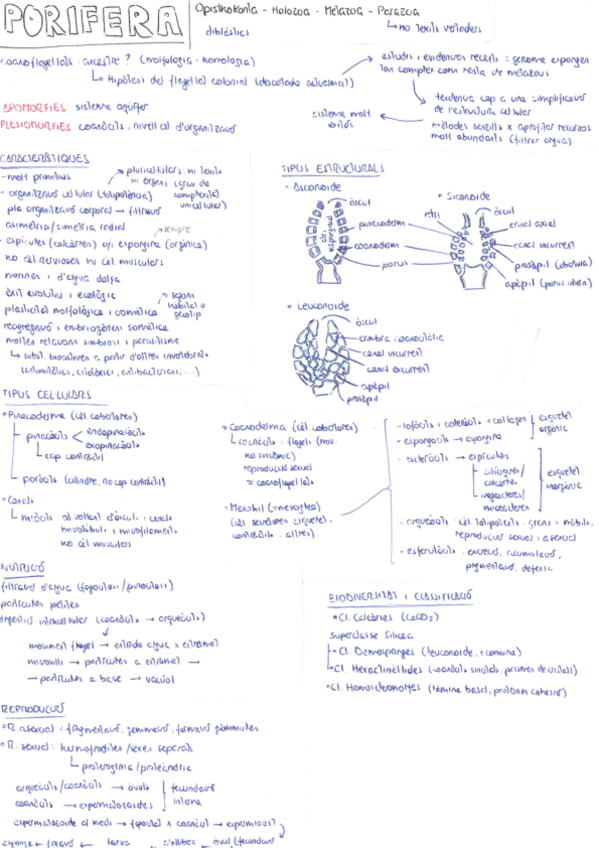 PORIFERA
Opisthokonta - Holozoa - Metazoa - Parazoa
diblàstics
no teixits vertaders
coanoflagel·lats: ancestre? (morfologia - homologia)
Hipòtesi del flagel·lat colonial
estudis i evidències recents: genoma esponges
tan complex com resta de metazous
tendència cap a una simplificació
de l'estructura cel·lular
mètodes senzills x aprofitar recursos
molt abundants (filtrar aigua)
sistema molt
APOMORFIES sistema aqüífer
PLESIOMORFIES coanòcits, nivell cel. d'organització
CARACTERÍSTIQUES
- molt primitius
pluricel·lulars, ni teixits
ni òrgans
- organització cel·lular (totipotència)
pla organització corporal → filtració
asimetria/simetria radial
- espícules (calcàries) o/i espongina (orgànica)
no cèl nervioses no cèl musculars
marines i d'aigua dolça
èxit evolutiu i ecològic
plasticitat morfològica i
segons
hàbitat o
genotip
reagregació i embriogènesi somàtica
moltes relacions simbiosi i parasitisme
TIPUS ESTRUCTURALS
• Asconoide
òscul
atri
pinacoderm
coanoderm
porus
• Siconoide
atri
òscul
canal axial
canal incurrent
prosòpil (obertura)
apòpil (porus intern)
• Leuconoide
òscul
cambra coanocítica
canal incurrent
canal excurrent
apòpil
prosòpil
TIPUS CEL·LULARS
• Pinacoderma (cèl. cobertores)
pinacòcits
endopinacòcits
exopinacòcits
cap contràctil
poròcits (cilindre, no cap contràctil)
• Canals
miòcits al voltant d'òsculs i canals
miotúbuls i miofilaments
no cèl musculars
• Coanoderma (cèl cobertores)
coanòcits: flagels (mov.
no síncronic)
reproducció sexual
≈ coanoflagel·lats
• Mesohil (=mesoglea)
(cèl secretores esquelet,
contràctils, altres)
- lofòcits i colenòcits → col·lagen
esquelet
orgànic
- espongòcits → espongina
- escleròcits → espícules
calcàries
megascleres/
microscleres
esquelet
inorgànic
- arqueòcits: cèl totipotents, grans i mòbils,
reproducció sexual i asexual
- esferulòcits: excreció, acumulació,
pigmentació, defensa
NUTRICIÓ
filtració d'aigua (fagocitosi/pinocitosi)
partícules petites
digestió intracel·lular (coanòcits → arqueòcits)
moviment flagel → entrada aigua x
microvilli → partícules a
→ partícules a base → vacúol
BIODIVERSITAT I CLASSIFICACIÓ
• Cl. Calcàries (CaCO3)
superclasse Silicea
• Cl. Demosponges (leuconoide, + comuna)
• Cl. Hexactinèl·lides
• Cl. Homoscleromorfes (làmina basal, )
REPRODUCCIÓ
• R. asexual: fragmentació, gemmació, formació gèmmules
• R. sexual: hermafrodites/sexes separats
proterogínia/proteràndria
arqueòcits/coanòcits → òvuls
coanòcits → espermatozoides
fecundació
interna
espermatozoide al medi → fagocitat x coanòcit → espermiocist
òvul (fecundació
larva
esponja ← fixació ←